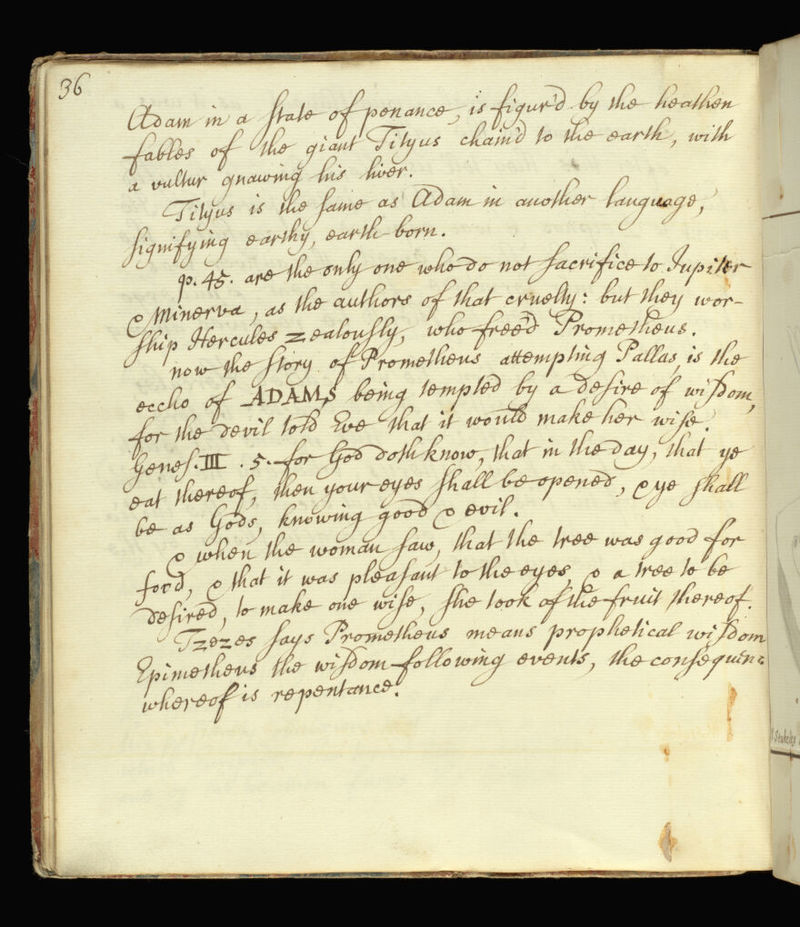 36
Adam in a state of penance, is figur'd by the heathen
fables of the giant Tityus chain'd to the earth, with
a vultur gnawing his liver.
Tityus is the same as Adam in another language,
signifying earthy, earth born.
p. 45. are the only one who do not sacrifice to Jupiter
& Minerva, as the authors of that cruelty: but they wor-
ship Hercules zealously, who free'd Prometheus.
now the story of Prometheus attempting Pallas, is the
eccho of ADAMS being tempted by a desire of wisdom,
for the devil told Eve that it would make her wise.
Genes. III. 5. for God doth know, that in the day, that ye
eat thereof, then your eyes shall be opened, & ye shall
be as Gods, knowing good & evil.
& when the woman saw, that the tree was good for
food, & that it was pleasant to the eyes, & a tree to be
desired, to make one wise, she took of the fruit thereof.
Tzezes says Prometheus means prophetical wisdom
Epimetheus the wisdom following events, the consequen=
whereof is repentance.
Stukeley